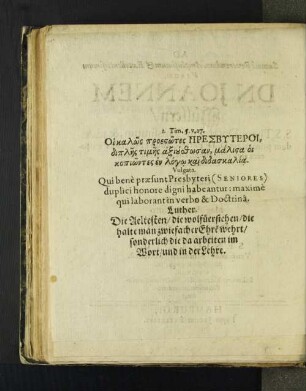 1. Tim. 5. v. 17.
Οἱ καλῶς προεστῶτες ΠΡΕΣΒΥΤΕΡΟΙ,
διπλῆς τιμῆς ἀξιούσθωσαν, μάλιστα οἱ
κοπιῶντες ἐν λόγῳ καὶ διδασκαλίᾳ.
Vulgata.
Qui benè præsunt Presbyteri (SENIORES)
duplici honore digni habeantur: maximè
qui laborant in verbo & Doctrinâ,
Luther.
Die Aeltesten/ die wol fürstehen/ die
halte man zwiefacher Ehre wehrt/
sonderlich die da arbeiten im
Wort/ und in der Lehre.